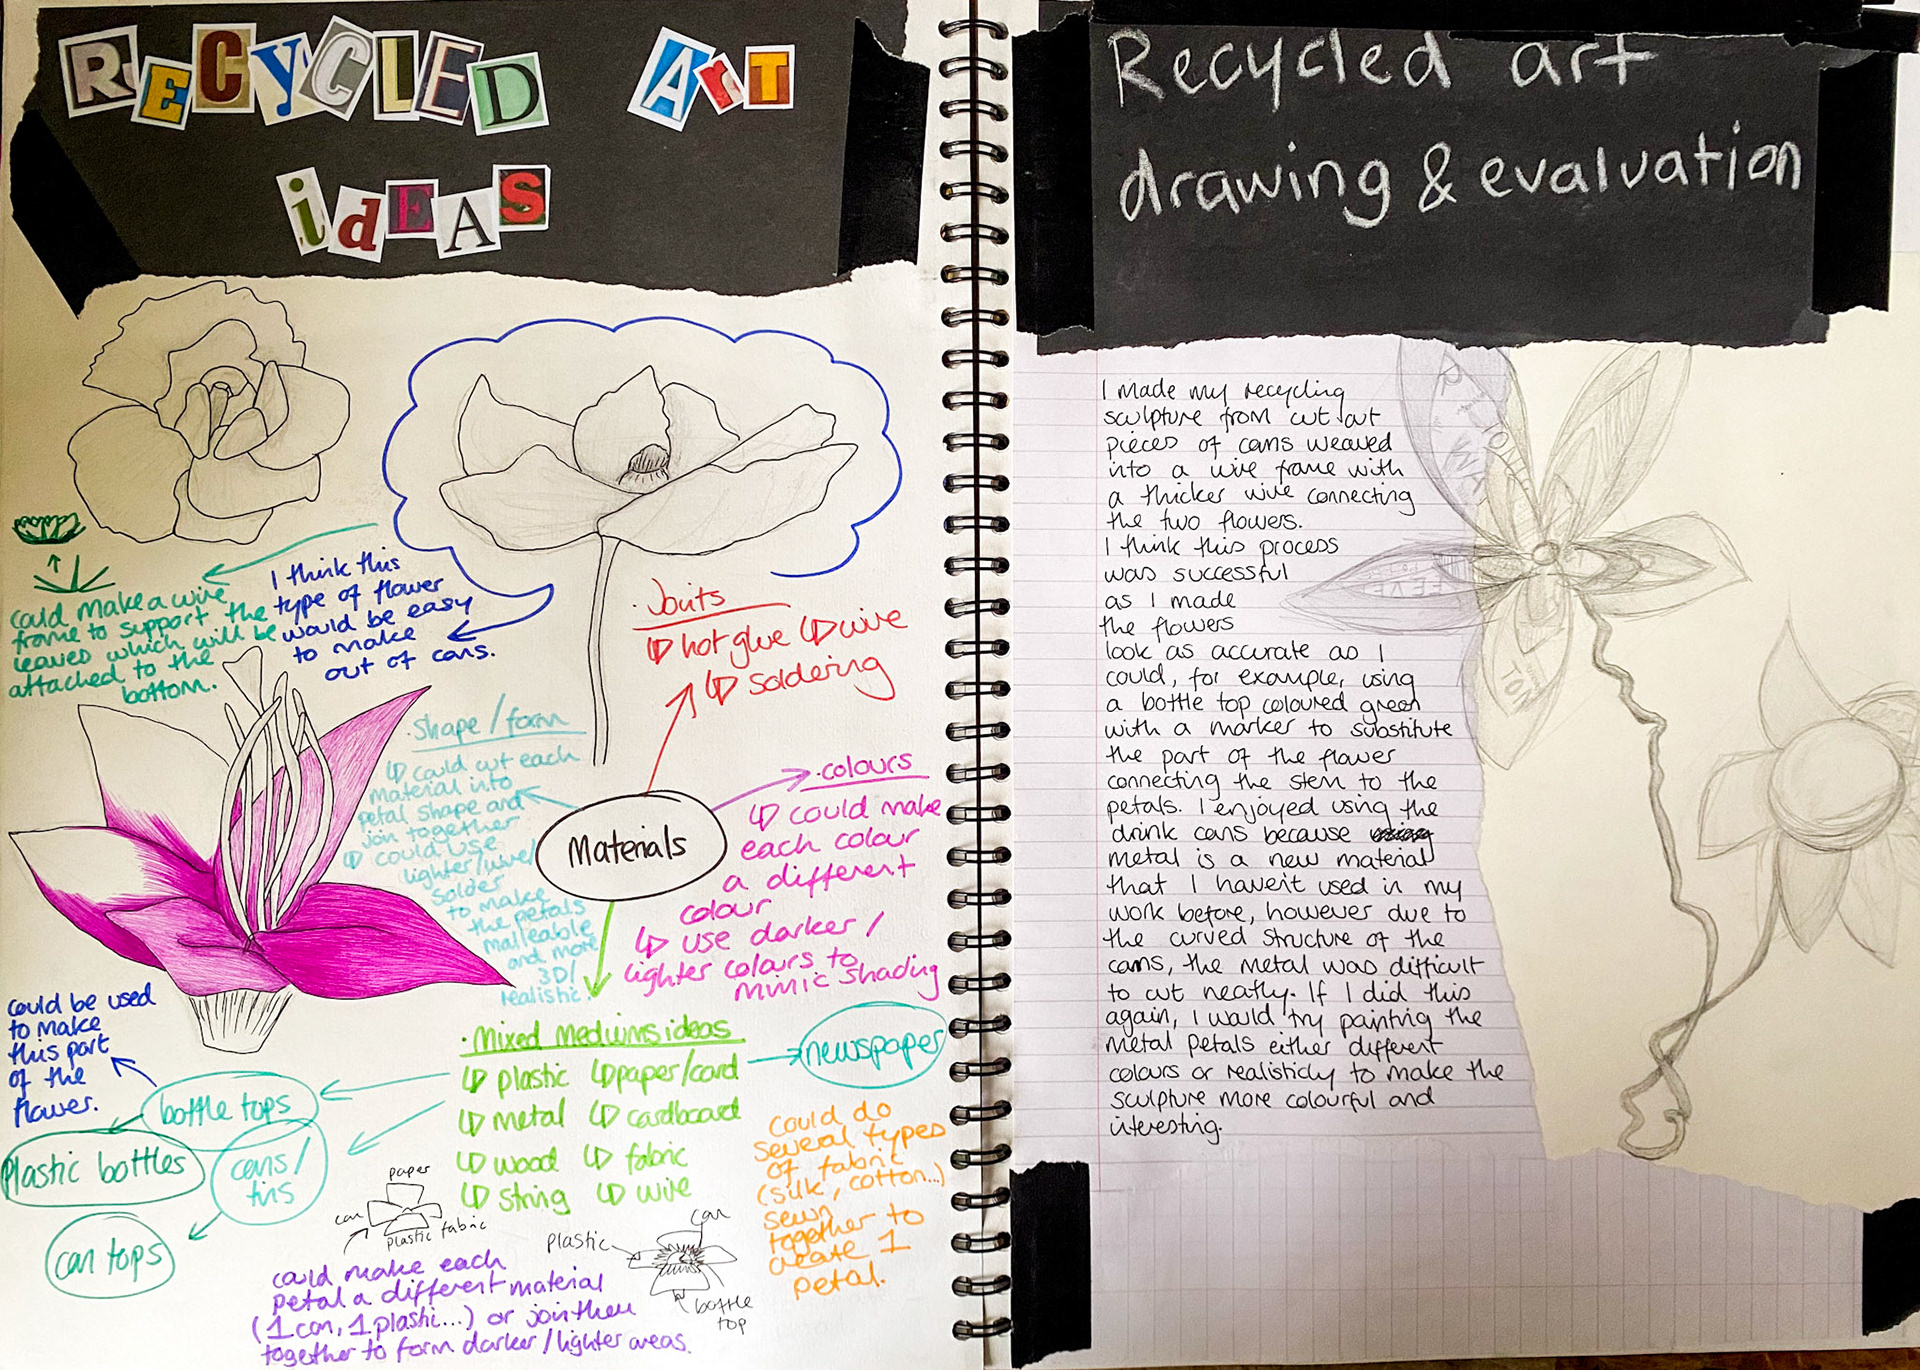 RECYCLED Art
idEAS
I think this
type of flower
would be easy
to make
out of cans.
could make a wire
frame to support the
leaves which will be
attached to the
bottom.
· Joints
hot glue wire
soldering
· Shape / form
could cut each
material into
petal shape and
join together
could use
lighter/wire/
solder
to make
the petals
malleable
and more
3D/
realistic.
Materials
· colours
could make
each colour
a different
colour
use darker /
lighter colours to
mimic shading
· Mixed mediums ideas
plastic paper/card
metal cardboard
wood fabric
string wire
newspaper
could be used
to make
this part
of the
flower.
bottle tops
Plastic bottles
cans/
tins
can tops
paper
can
plastic fabric
can
plastic
bottle
top
could make each
petal a different material
(1 can, 1 plastic...) or join them
together to form darker/lighter areas.
could do
several types
of fabric
(silk, cotton...)
sewn
together to
create 1
petal.
Recycled art
drawing & evaluation
I made my recycling
sculpture from cut out
pieces of cans weaved
into a wire frame with
a thicker wire connecting
the two flowers.
I think this process
was successful
as I made
the flowers
look as accurate as I
could, for example, using
a bottle top coloured green
with a marker to substitute
the part of the flower
connecting the stem to the
petals. I enjoyed using the
drink cans because
metal is a new material
that I haven't used in my
work before, however due to
the curved structure of the
cans, the metal was difficult
to cut neatly. If I did this
again, I would try painting the
metal petals either different
colours or realisticly to make the
sculpture more colourful and
interesting.